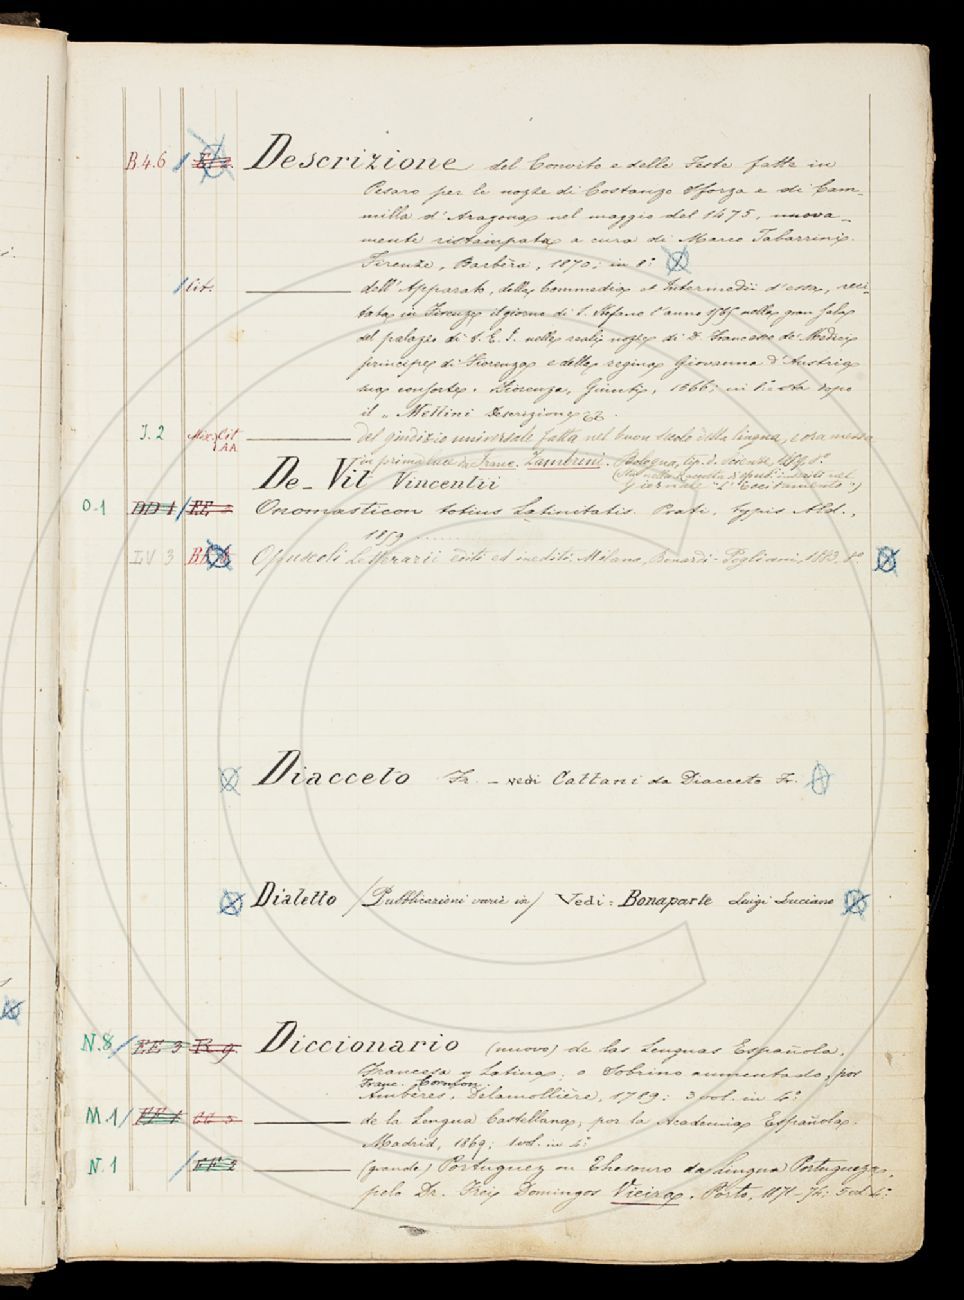 B.4.6 / E. 2. Descrizione del Convito e delle Feste fatte in
Pesaro per le nozze di Costanzo Sforza e di Cam-
milla d'Aragona nel maggio del 1475, nuova-
mente ristampata a cura di Marco Tabarrini.
Firenze, Barbèra, 1870; in 8.°
dell'Apparato, della Commedia et Intermedii d'essa, reci-
tata in Firenze il giorno di S. Stefano l'anno 1565 nella gran Sala
del palazio di S. E. I. nelle reali nozze di D. Francesco de' Medici
principe di Fiorenza e della regina Giovanna d'Austria
sua consorte. Fiorenza, Giunti, 1566; in 8.° sta dopo
il „ Mellini Descrizione
J. 2 del giudizio universale fatta nel buon secolo della lingua, e ora messa
in prima luce da Franc. Zambrini. Bologna, tip. d. scienze, 1859 8.°
Giornale "L'Eccitamento")
De-Vit Vincentii
O.1 DD 1 / EE 3 Onomasticon totius Latinitatis. Prati, typis Ald.,
1859
LV 3 Opuscoli Letterarii editi ed inediti. Milano, Boniardi-Pogliani, 1883, 8.°
Diacceto Fr. – vedi Cattani da Diacceto Fr.
Dialetto (Pubblicazioni varie in) Vedi: Bonaparte Luigi Luciano
N.8 / EE 3 R 9. Diccionario (nuovo) de las Lenguas Española,
Francesa y Latina; o Sobrino aumentado, por
Franc. Cormon.
Ambères, Delamollière, 1789; 3 vol. in 4.°
M.1 / de la Lengua Castellana, por la Academia Española.
Madrid, 1869; 1 vol. in 4.°
N.1 / EE 2 (grande) Portuguez ou Thesouro da Lingua Portugueza,
pelo Dr. Frei Domingos Vieira. Porto, 1871-74; 5 vol. 4.°